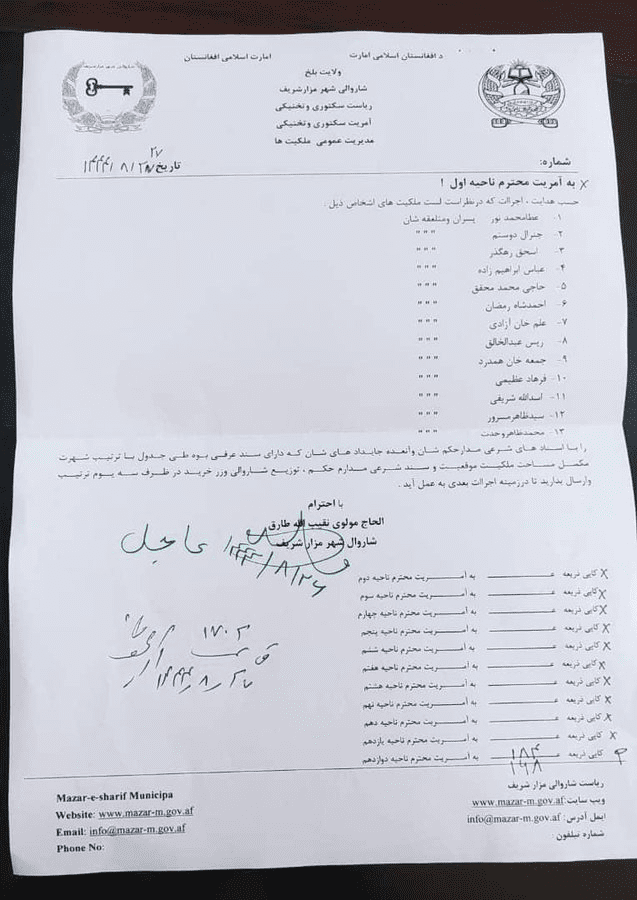 د افغانستان اسلامی امارت
امارت اسلامی افغانستان
ولایت بلخ
شاروالی شهر مزارشریف
ریاست سکتوری وتخنیکی
آمریت سکتوری وتخنیکی
مدیریت عمومی ملکیت ها
شماره:
تاریخ ۱۴۴۴/۸/۲۷
به آمریت محترم ناحیه اول !
حسب هدایت ، اجراات که درنظراست لست ملکیت های اشخاص ذیل .
۱- عطامحمد نور پسران ومتعلقه شان
۲- جنرال دوستم " " "
۳- اسحق رهگذر " " "
۴- عباس ابراهیم زاده " " "
۵- حاجی محمد محقق " " "
۶- احمدشاه رمضان " " "
۷- علم خان آزادی " " "
۸- ریس عبدالخالق " " "
۹- جمعه خان همدرد " " "
۱۰- فرهاد عظیمی " " "
۱۱- اسدالله شریفی " " "
۱۲- سیدظاهرمسرور " " "
۱۳- محمدظاهروحدت " " "
را با اسناد های شرعی مدارحکم شان وآنعده جایداد های شان که دارای سند عرفی بوه طی جدول با ترتیب شهرت
مکمل مساحت ملکیت موقعیت و سند شرعی مدارم حکم ، توزیع شاروالی ورر خرید در ظرف سه یوم ترتیب
وارسال بدارید تا درزمینه اجراات بعدی به عمل آید .
با احترام
الحاج مولوی نقیب الله طارق
شاروال شهر مزار شریف
عاجل
۱۴۴۴/۸/۲۶
۱۷۰۲
۱۴۴۴/۸/۲۷
کاپی ذریعه ــــــ به آمـــریت محترم ناحیه دوم
کاپی ذریعه ــــــ به آمـــریت محترم ناحیه سوم
کاپی ذریعه ــــــ به آمـــریت محترم ناحیه چهارم
کاپی ذریعه ــــــ به آمـــریت محترم ناحیه پنجم
کاپی ذریعه ــــــ به آمـــریت محترم ناحیه ششم
کاپی ذریعه ــــــ به آمـــریت محترم ناحیه هفتم
کاپی ذریعه ــــــ به آمـــریت محترم ناحیه هشتم
کاپی ذریعه ــــــ به آمـــریت محترم ناحیه نهم
کاپی ذریعه ــــــ به آمـــریت محترم ناحیه دهم
کاپی ذریعه ــــــ به آمـــریت محترم ناحیه یازدهم
کاپی ذریعه ۱۸۴ به آمـــریت محترم ناحیه دوازدهم
۱۶۸
ریاست شاروالی مزار شریف
ویب سایت: www.mazar-m.gov.af
ایمل آدرس: info@mazar-m.gov.af
شماره تیلفون:
Mazar-e-sharif Municipa
Website: www.mazar-m.gov.af
Email: info@mazar-m.gov.af
Phone No: